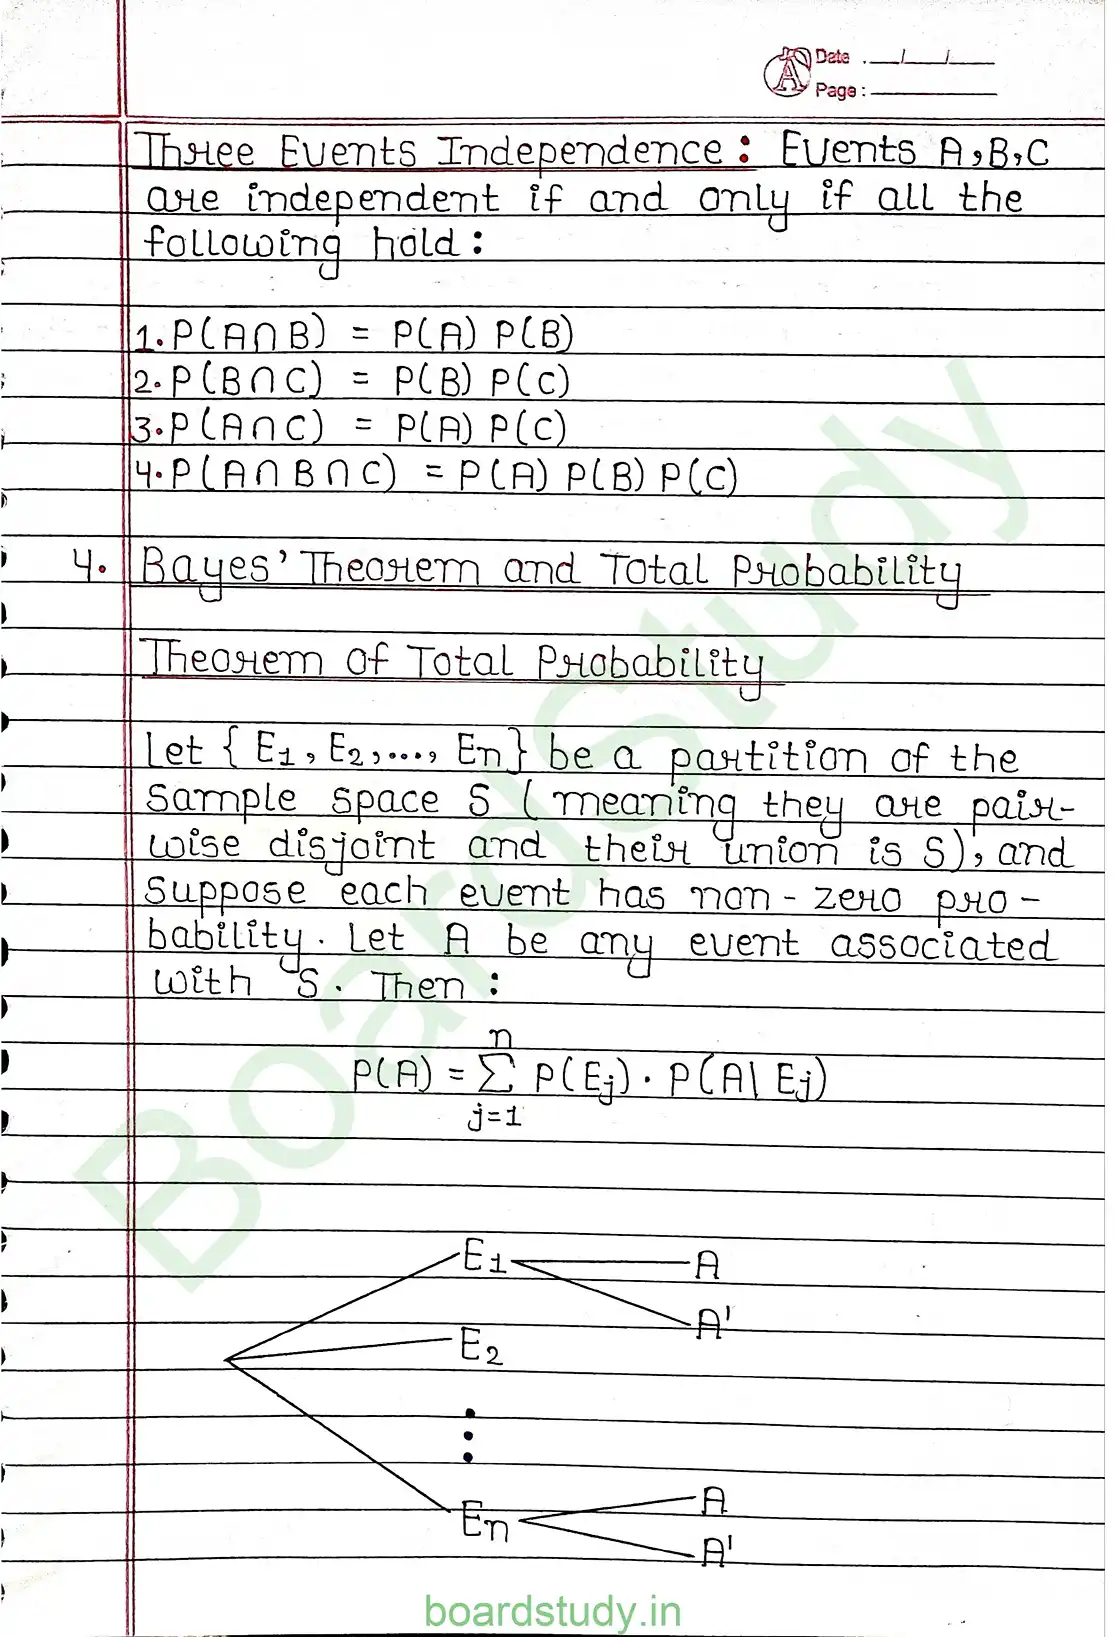 Date . __/__/__
Page : ______
Three Events Independence : Events A, B, C
are independent if and only if all the
following hold :
1. P(A∩B) = P(A) P(B)
2. P(B∩C) = P(B) P(C)
3. P(A∩C) = P(A) P(C)
4. P(A∩B∩C) = P(A) P(B) P(C)
4. Bayes' Theorem and Total Probability
Theorem of Total Probability
Let { E1, E2, ..., En} be a partition of the
sample space S (meaning they are pair-
wise disjoint and their union is S), and
suppose each event has non-zero pro-
bability. Let A be any event associated
with S. Then :
P(A) = n∑j=1 P(Ej) · P(A| Ej)
E1 A
A'
E2
⋮
En A
A'
Boardstudy
boardstudy.in